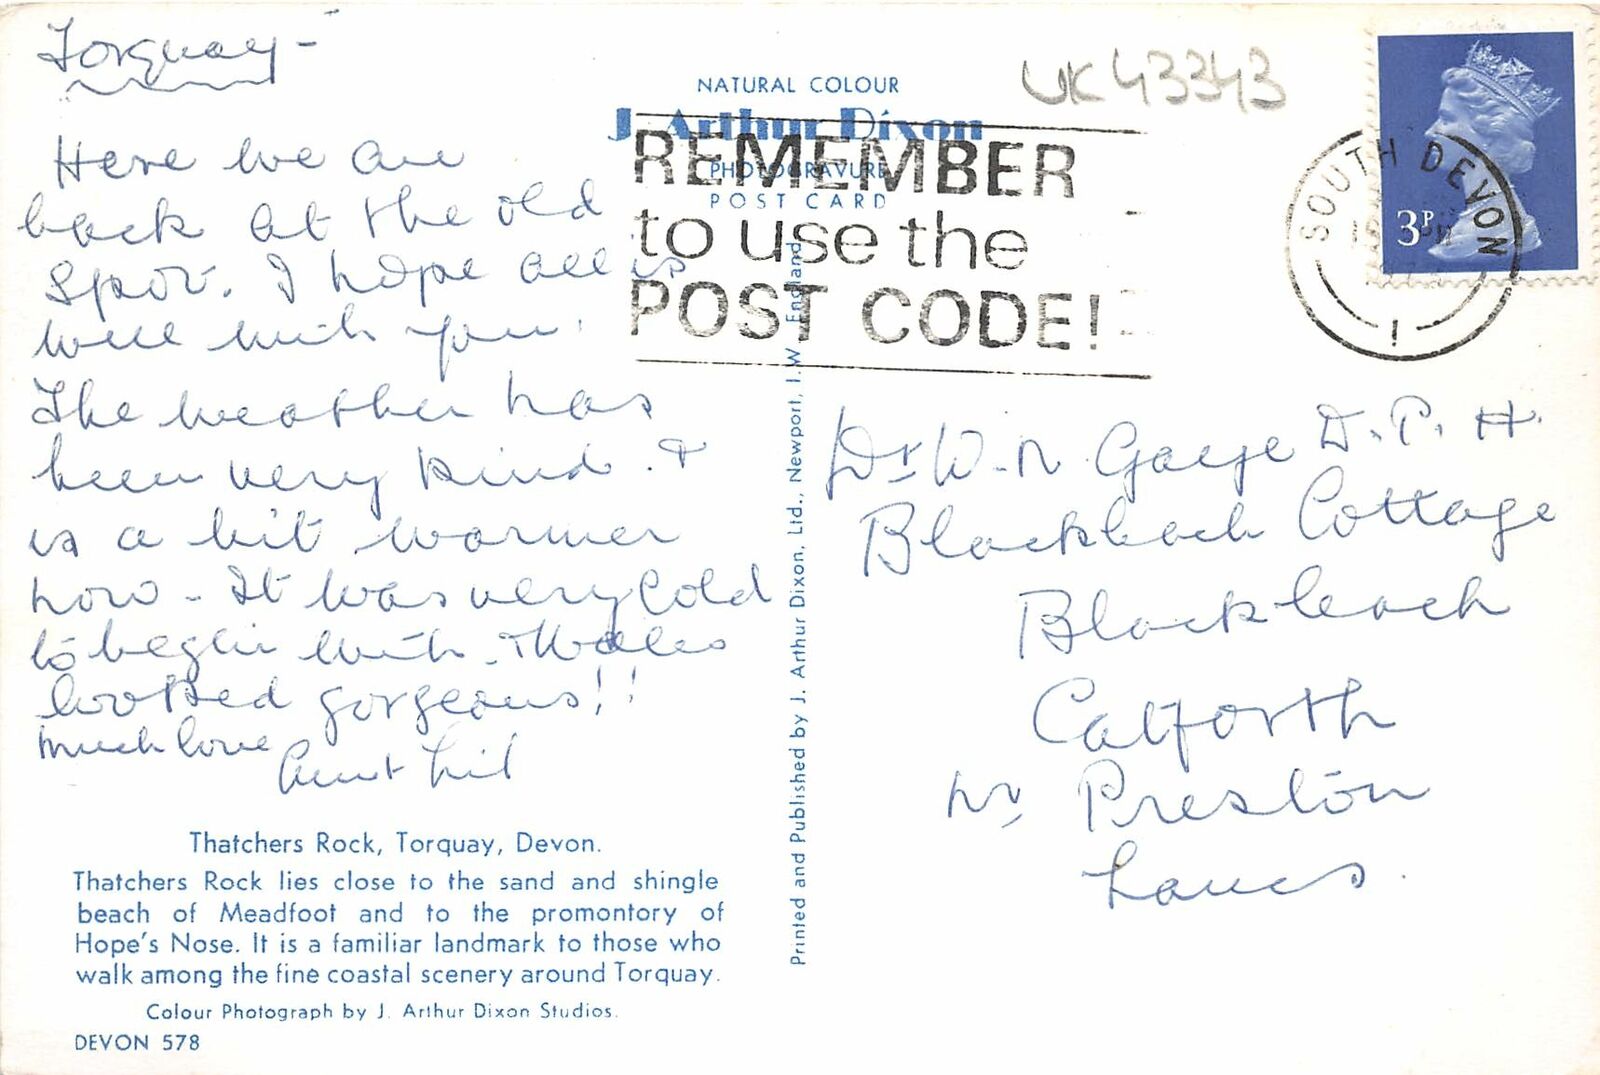 Torquay -
Here we are
back at the old
Spot. I hope all is
well with you.
The weather has
been very kind. &
is a bit warmer
now - It was very cold
to begin with - Wales
looked gorgeous!!
Much love
Aunt Lil
Thatchers Rock, Torquay, Devon.
Thatchers Rock lies close to the sand and shingle
beach of Meadfoot and to the promontory of
Hope's Nose. It is a familiar landmark to those who
walk among the fine coastal scenery around Torquay.
Colour Photograph by J. Arthur Dixon Studios.
DEVON 578
NATURAL COLOUR
J. Arthur Dixon
PHOTOGRAVURE
POST CARD
Printed and Published by J. Arthur Dixon, Ltd., Newport, I.W. England
UK 43343
REMEMBER
to use the
POST CODE!
SOUTH DEVON
1
3P
Dr W. N. D.P.H.
Blackleach Cottage
Blackleach
Catforth
nr Preston
Lancs.